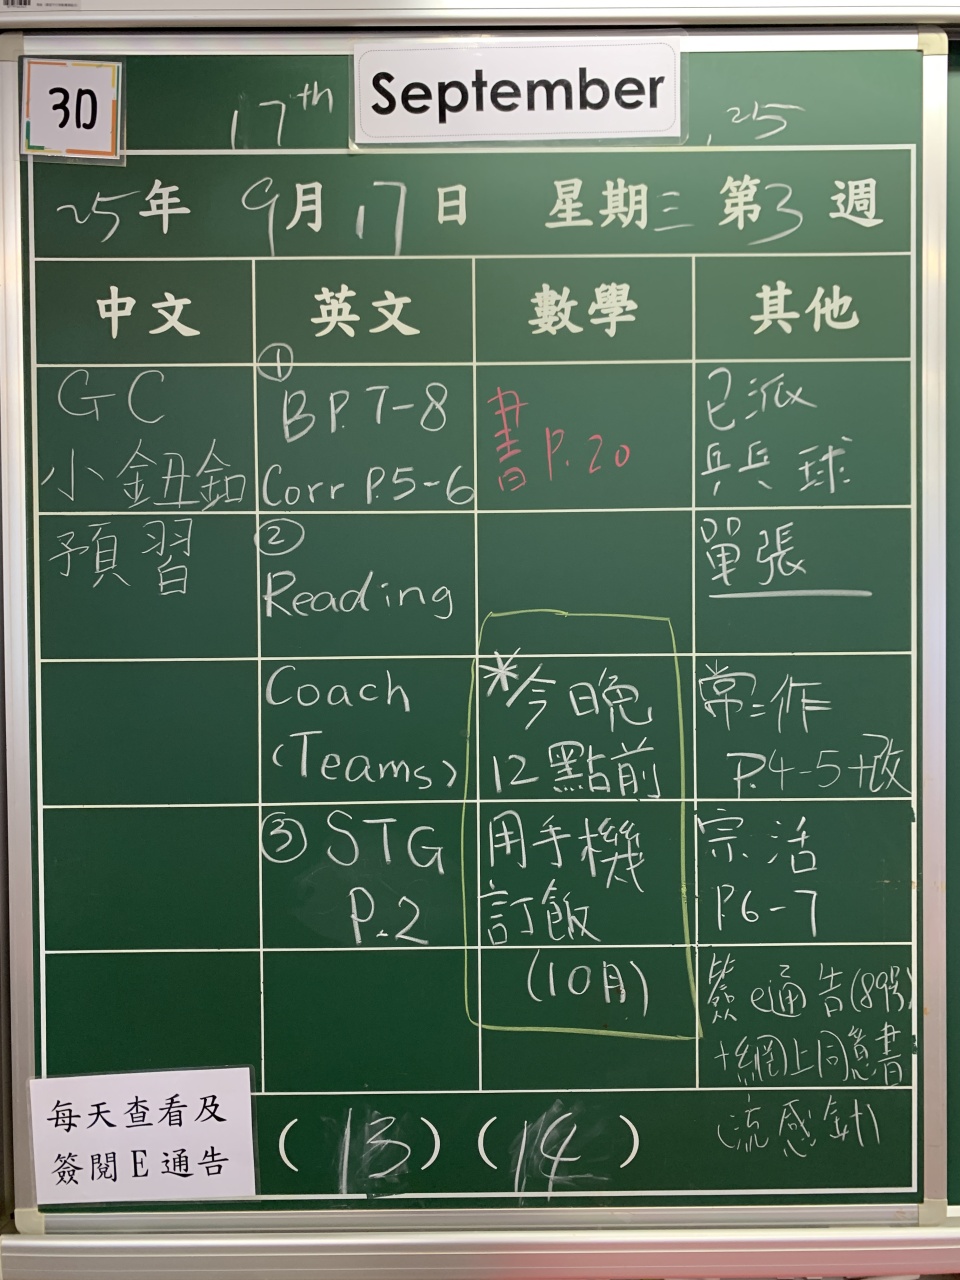 3D
17th September , 25
25年 9月 17日 星期三 第3週
中文 英文 數學 其他
GC
小鈕釦
預習
①
BP.7-8
Corr P.5-6
②
Reading
Coach
(Teams)
③ STG
P.2
書P.20
*今晚
12點前
用手機
訂飯
(10月)
已派
乒乓球
單張
常=作
P.4-5+改
宗活
P6-7
簽e通告(89號)
+網上同意書
(流感針)
每天查看及
簽閱E通告
(13) (14)